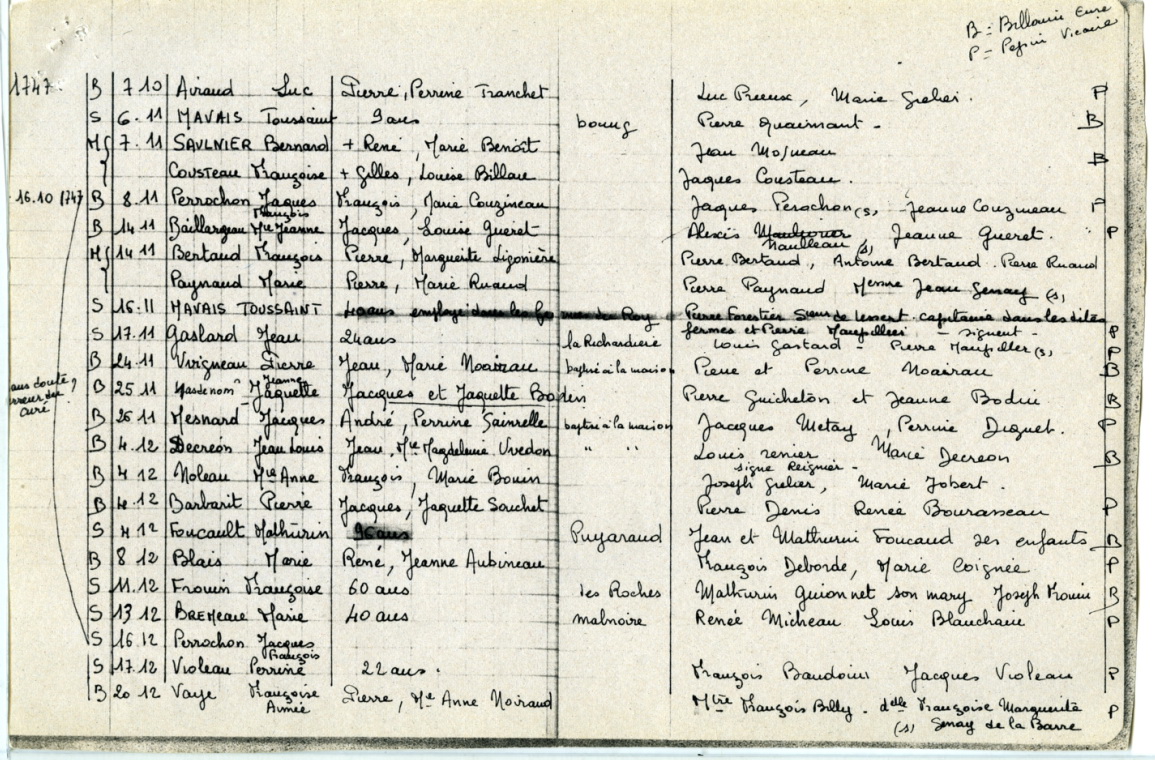 B = Billouin Cure
P = Pepin Vicaire
1747. B 7.10 Airaud Luc Pierre, Perrine Tranchet Luc Preux, Marie Grelier. P
S 6.11 MAVAIS Toussaint 9 ans bourg Pierre Guaimant - B
M { 7.11 SAULNIER Bernard + René, Marie Benoît Jean Moyneau B
COUSTEAU Françoise + Gilles, Louise Billau Jaques Cousteau.
16.10 1747 B 8.11 Perrochon Jaques François François, Marie Couzineau Jaques Perochon (s), Jeanne Couzineau P
B 14 11 Baillargeau Mie Jeanne Jacques, Louise Gueret Alexis Naulleau (s), Jeanne Gueret. P
M { 14 11 Bertaud François Pierre, Marguerite Ligonière Pierre Bertaud, Antoine Bertaud. Pierre Ruaud
Paynaud Marie Pierre, Marie Ruaud Pierre Paynaud Jean Genay (s)
S 16.11 MAVAIS TOUSSAINT employé dans les fermes du Roy Pierre Forestier Sieur de Lessert capitaine dans les dites
fermes et Pierre Maupillier - signent - P
S 17.11 Gaslard Jean 24 ans la Richardière Louis Gastard - Pierre Maupillier (s) P
B 24.11 Vrigneau Pierre Jean, Marie Noairau baptisé à la maison Pierre et Perrine Noairau B
sans doute, erreur du curé B 25 11 pas de nom Jeanne Jaquette Jacques et Jaquette Bodin Pierre Guicheton et Jeanne Bodin B
B 26 11 Mesnard Jacques André, Perrine Sainrelle baptisé à la maison Jacques Metay, Perrine Diguet. P
B 4.12 Decreon Jean Louis Jean, Mie Magdeleine Uvedon " " Louis renier Marie Decreon B
signe Reignier -
B 4 12 Noleau Mie Anne François, Marie Bouin Joseph Grelier, Marie Jobert.
B 4.12 Barbarit Pierre Jacques, Jaquette Souchet Pierre Denis Renée Bourasseau P
S 4 12 Foucault Mathurin 96 ans Puyaraud Jean et Mathurin Foucaud ses enfants B
B 8 12 Blais Marie René, Jeanne Aubineau François Deborde, Marie Coignée P
S 11.12 Frouin Françoise 60 ans des Roches Mathurin Guionnet son mary Joseph Frouin B
S 13 12 BREMEAUE Marie 40 ans malnoire Renée Micheau Louis Blanchain P
S 16 12 Perrochon Jacques François
S 17.12 Violeau Perrine 22 ans. François Baudoin Jacques Violeau P
B 20 12 Vaye Françoise Aimée Pierre, Me Anne Noiraud Mtre François Billy. delle Françoise Marguerite P
(s) Genay de la Barre